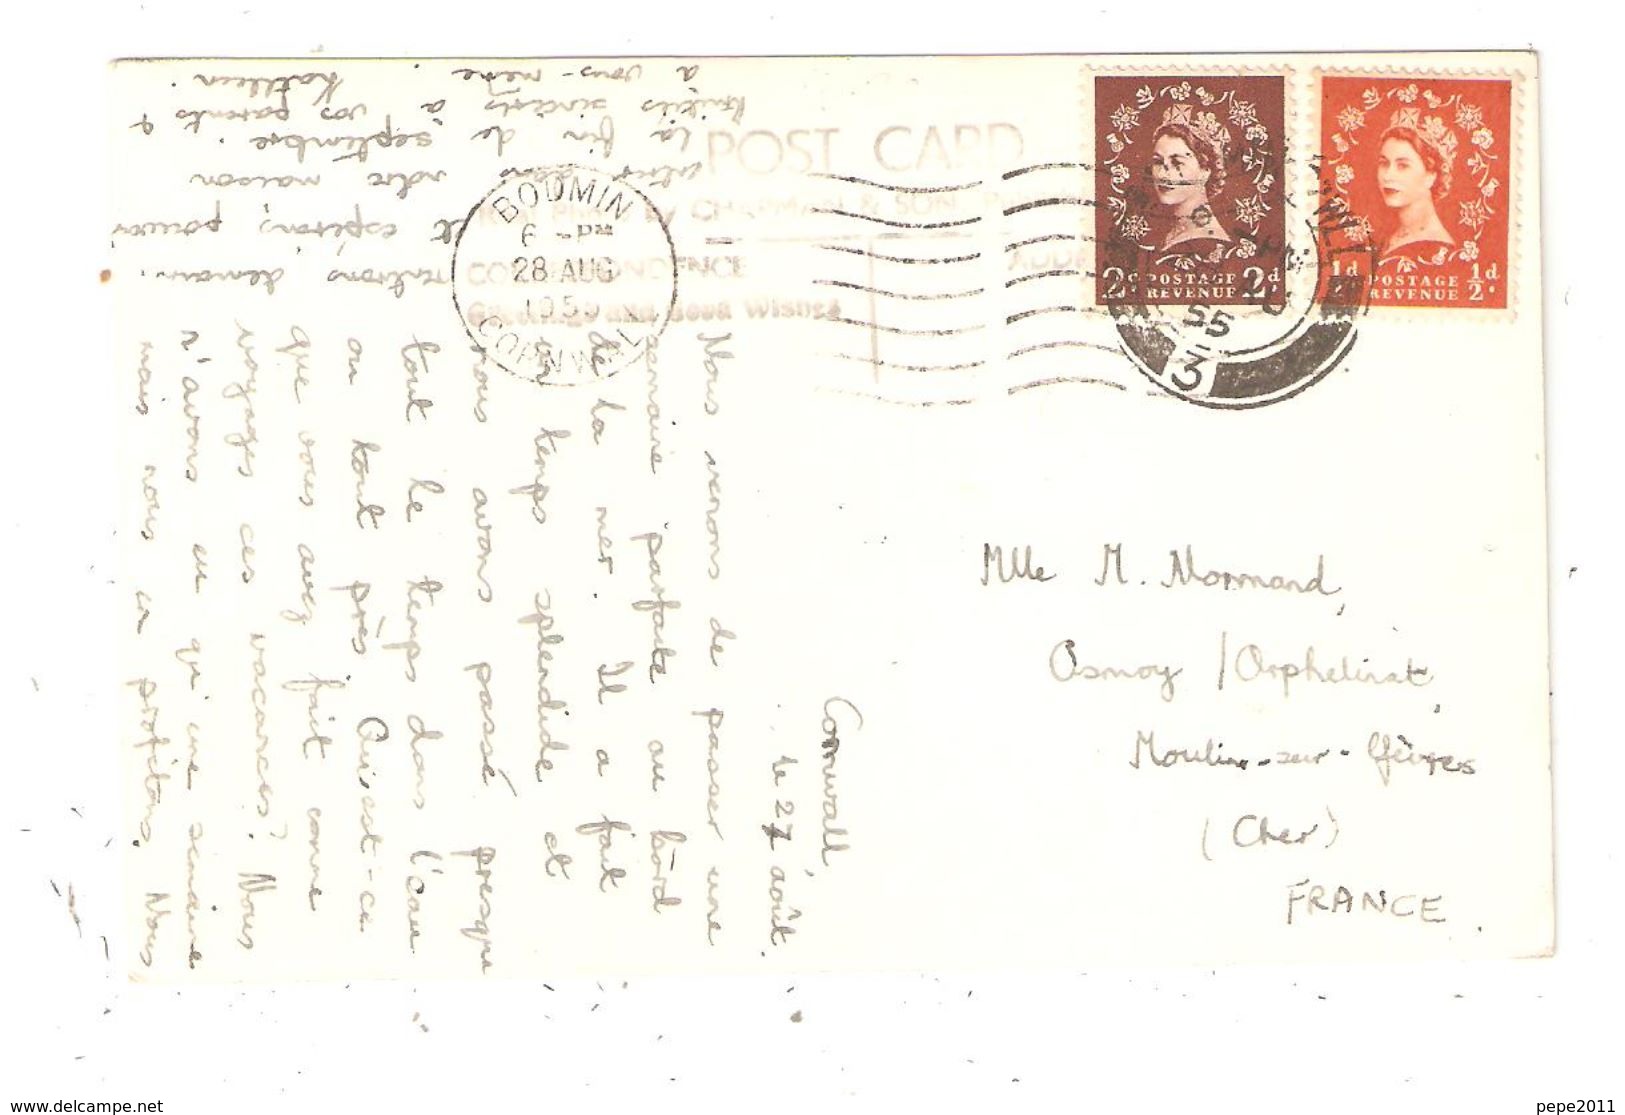 POST CARD
BODMIN
6 - PM
28 AUG
195
CORNWALL
CHAPMAN & SON
CORRESPONDENCE
Greetings and Good Wishes
2d POSTAGE REVENUE 2d
½d POSTAGE REVENUE ½d
55
3
Cornwall,
le 27 août.
Nous venons de passer une
semaine parfaite au bord
de la mer. Il a fait
un temps splendide et
nous avons passé presque
tout le temps dans l'eau
ou tout près. Qu'est-ce
que vous avez fait comme
voyages ces vacances? Nous
n'avons eu qu'une semaine
mais nous en profitons. Nous
rentrons demain.
et espérons pouvoir
notre maison
la fin de septembre.
Amitiés sincères à vos parents &
à vous-même. Kathleen.
Mlle M. Normand,
Osmoy / Orphelinat,
Moulin-sur-Yèvres
(Cher)
FRANCE.
www.delcampe.net
pepe2011